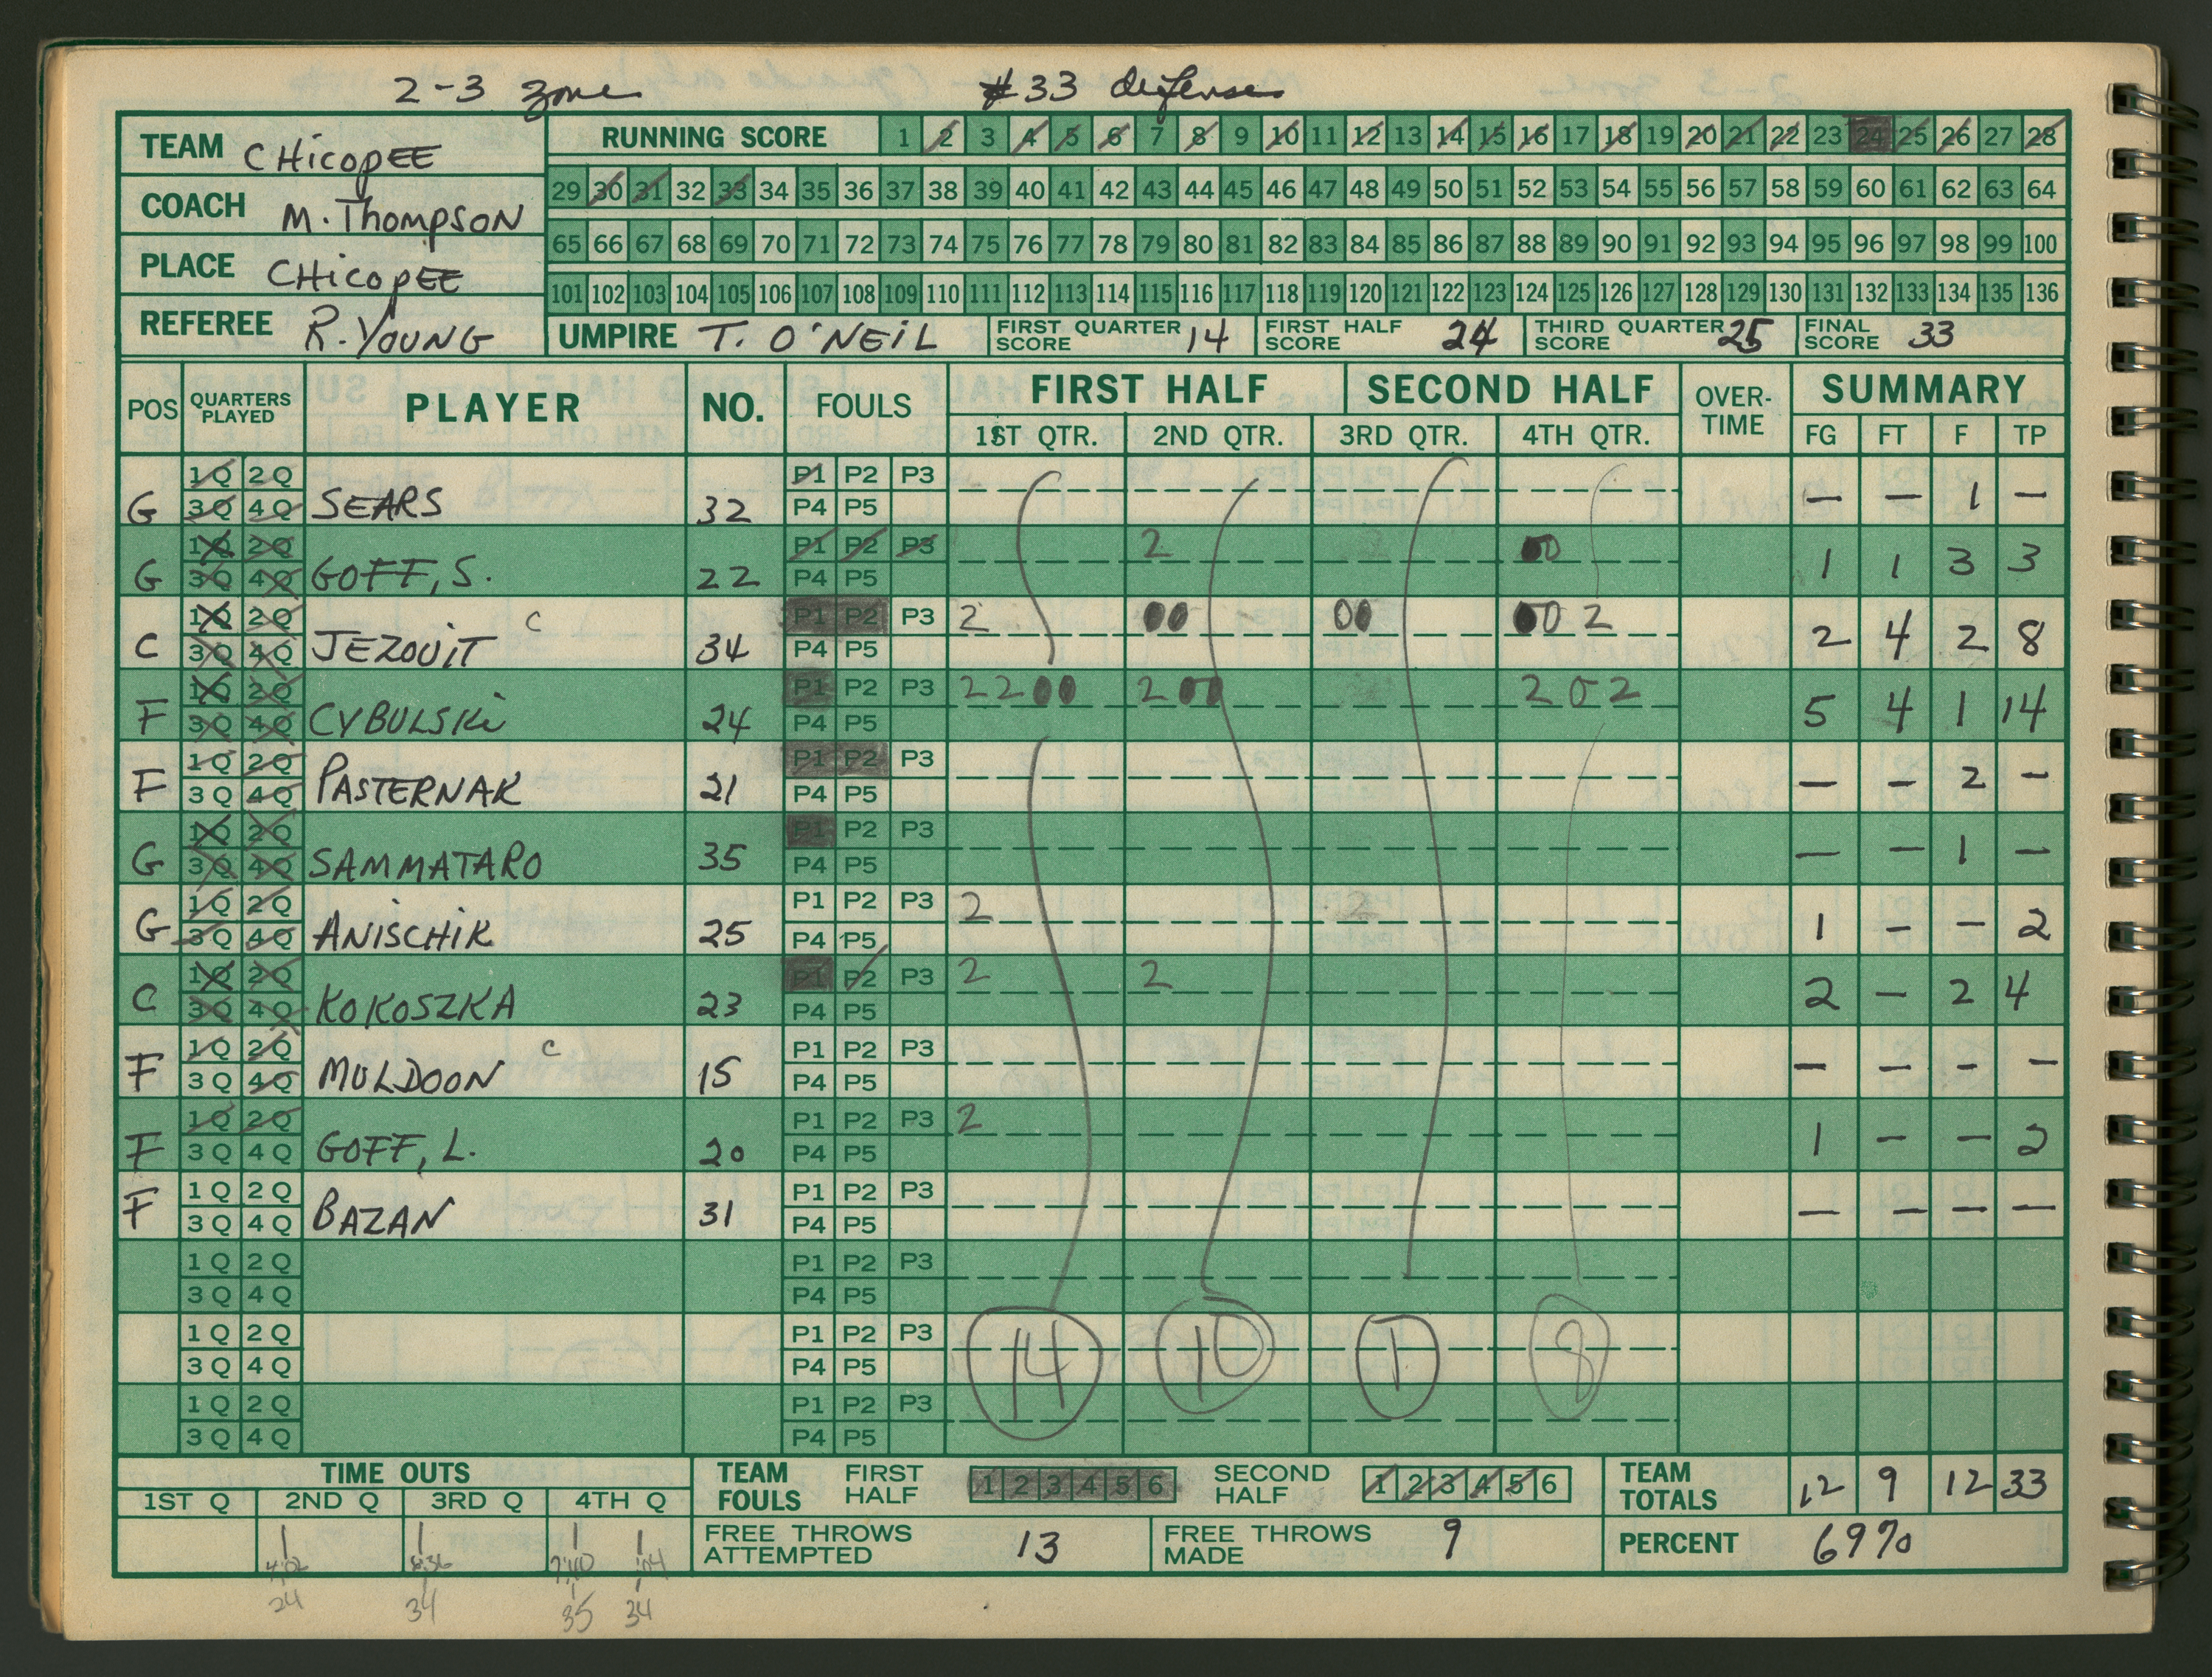 2-3 zone #33 defense
TEAM CHicopEE
COACH M. Thompson
PLACE CHicopEE
REFEREE R. YOUNG
RUNNING SCORE 1 2 3 4 5 6 7 8 9 10 11 12 13 14 15 16 17 18 19 20 21 22 23 24 25 26 27 28
29 30 31 32 33 34 35 36 37 38 39 40 41 42 43 44 45 46 47 48 49 50 51 52 53 54 55 56 57 58 59 60 61 62 63 64
65 66 67 68 69 70 71 72 73 74 75 76 77 78 79 80 81 82 83 84 85 86 87 88 89 90 91 92 93 94 95 96 97 98 99 100
101 102 103 104 105 106 107 108 109 110 111 112 113 114 115 116 117 118 119 120 121 122 123 124 125 126 127 128 129 130 131 132 133 134 135 136
UMPIRE T. O'NEIL FIRST QUARTER SCORE 14 FIRST HALF SCORE 24 THIRD QUARTER SCORE 25 FINAL SCORE 33
POS QUARTERS PLAYED PLAYER NO. FOULS FIRST HALF SECOND HALF OVER-TIME SUMMARY
1ST QTR. 2ND QTR. 3RD QTR. 4TH QTR. FG FT F TP
1Q 2Q P1 P2 P3
G 3Q 4Q SEARS 32 P4 P5 — — 1 —
1Q 2Q P1 P2 P3 2 00
G 3Q 4Q GOFF, S. 22 P4 P5 1 1 3 3
1Q 2Q C P1 P2 P3 2 00 00 00 2
C 3Q 4Q JEZOUIT 34 P4 P5 2 4 2 8
1Q 2Q P1 P2 P3 2 2 0 0 2 0 0 2 0 2
F 3Q 4Q CYBULSKi 24 P4 P5 5 4 1 14
1Q 2Q P1 P2 P3
F 3Q 4Q PASTERNAK 21 P4 P5 — — 2 —
1Q 2Q P1 P2 P3
G 3Q 4Q SAMMATARO 35 P4 P5 — — 1 —
1Q 2Q P1 P2 P3 2 2
G 3Q 4Q ANISCHIK 25 P4 P5 1 — — 2
1Q 2Q P1 P2 P3 2 2
C 3Q 4Q KOKOSZKA 23 P4 P5 2 — 2 4
1Q 2Q C P1 P2 P3
F 3Q 4Q MULDOON 15 P4 P5 — — — —
1Q 2Q P1 P2 P3 2
F 3Q 4Q GOFF, L. 20 P4 P5 1 — — 2
1Q 2Q P1 P2 P3
F 3Q 4Q BAZAN 31 P4 P5 — — — —
1Q 2Q P1 P2 P3
3Q 4Q P4 P5
1Q 2Q P1 P2 P3 14 10 1 8
3Q 4Q P4 P5
1Q 2Q P1 P2 P3
3Q 4Q P4 P5
TIME OUTS TEAM FOULS FIRST HALF 1 2 3 4 5 6 SECOND HALF 1 2 3 4 5 6 TEAM TOTALS 12 9 12 33
1ST Q 2ND Q 3RD Q 4TH Q
FREE THROWS ATTEMPTED 13 FREE THROWS MADE 9 PERCENT 69%
24 34 35 34